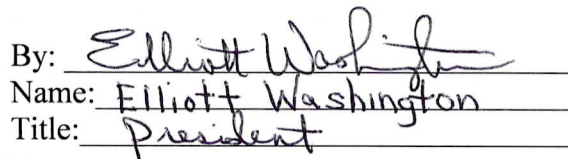 By: Elliott Washington
Name: Elliott Washington
Title: President